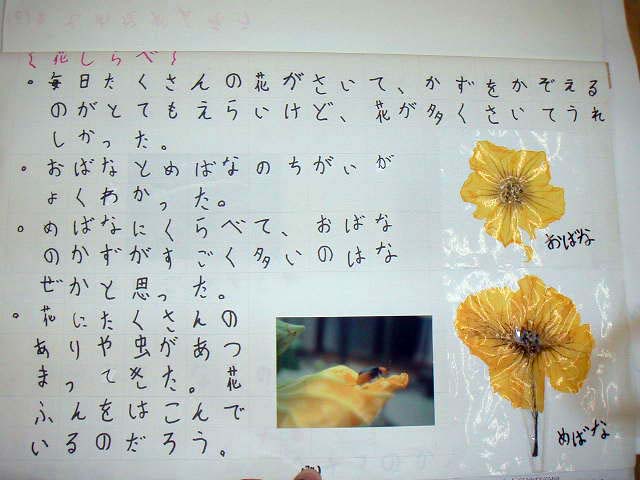 {花しらべ}
。毎日たくさんの花がさいて、かずをかぞえる
のがとてもえらいけど、花が多くさいてうれ
しかった。
。おばなとめばなのちがいが
よくわかった。
。めばなにくらべて、おばな
のかずがすごく多いのはな
ぜかと思った。
。花にたくさんの
ありや虫があつ
まってきた。花
ふんをはこんで
いるのだろう。
おばな
めばな